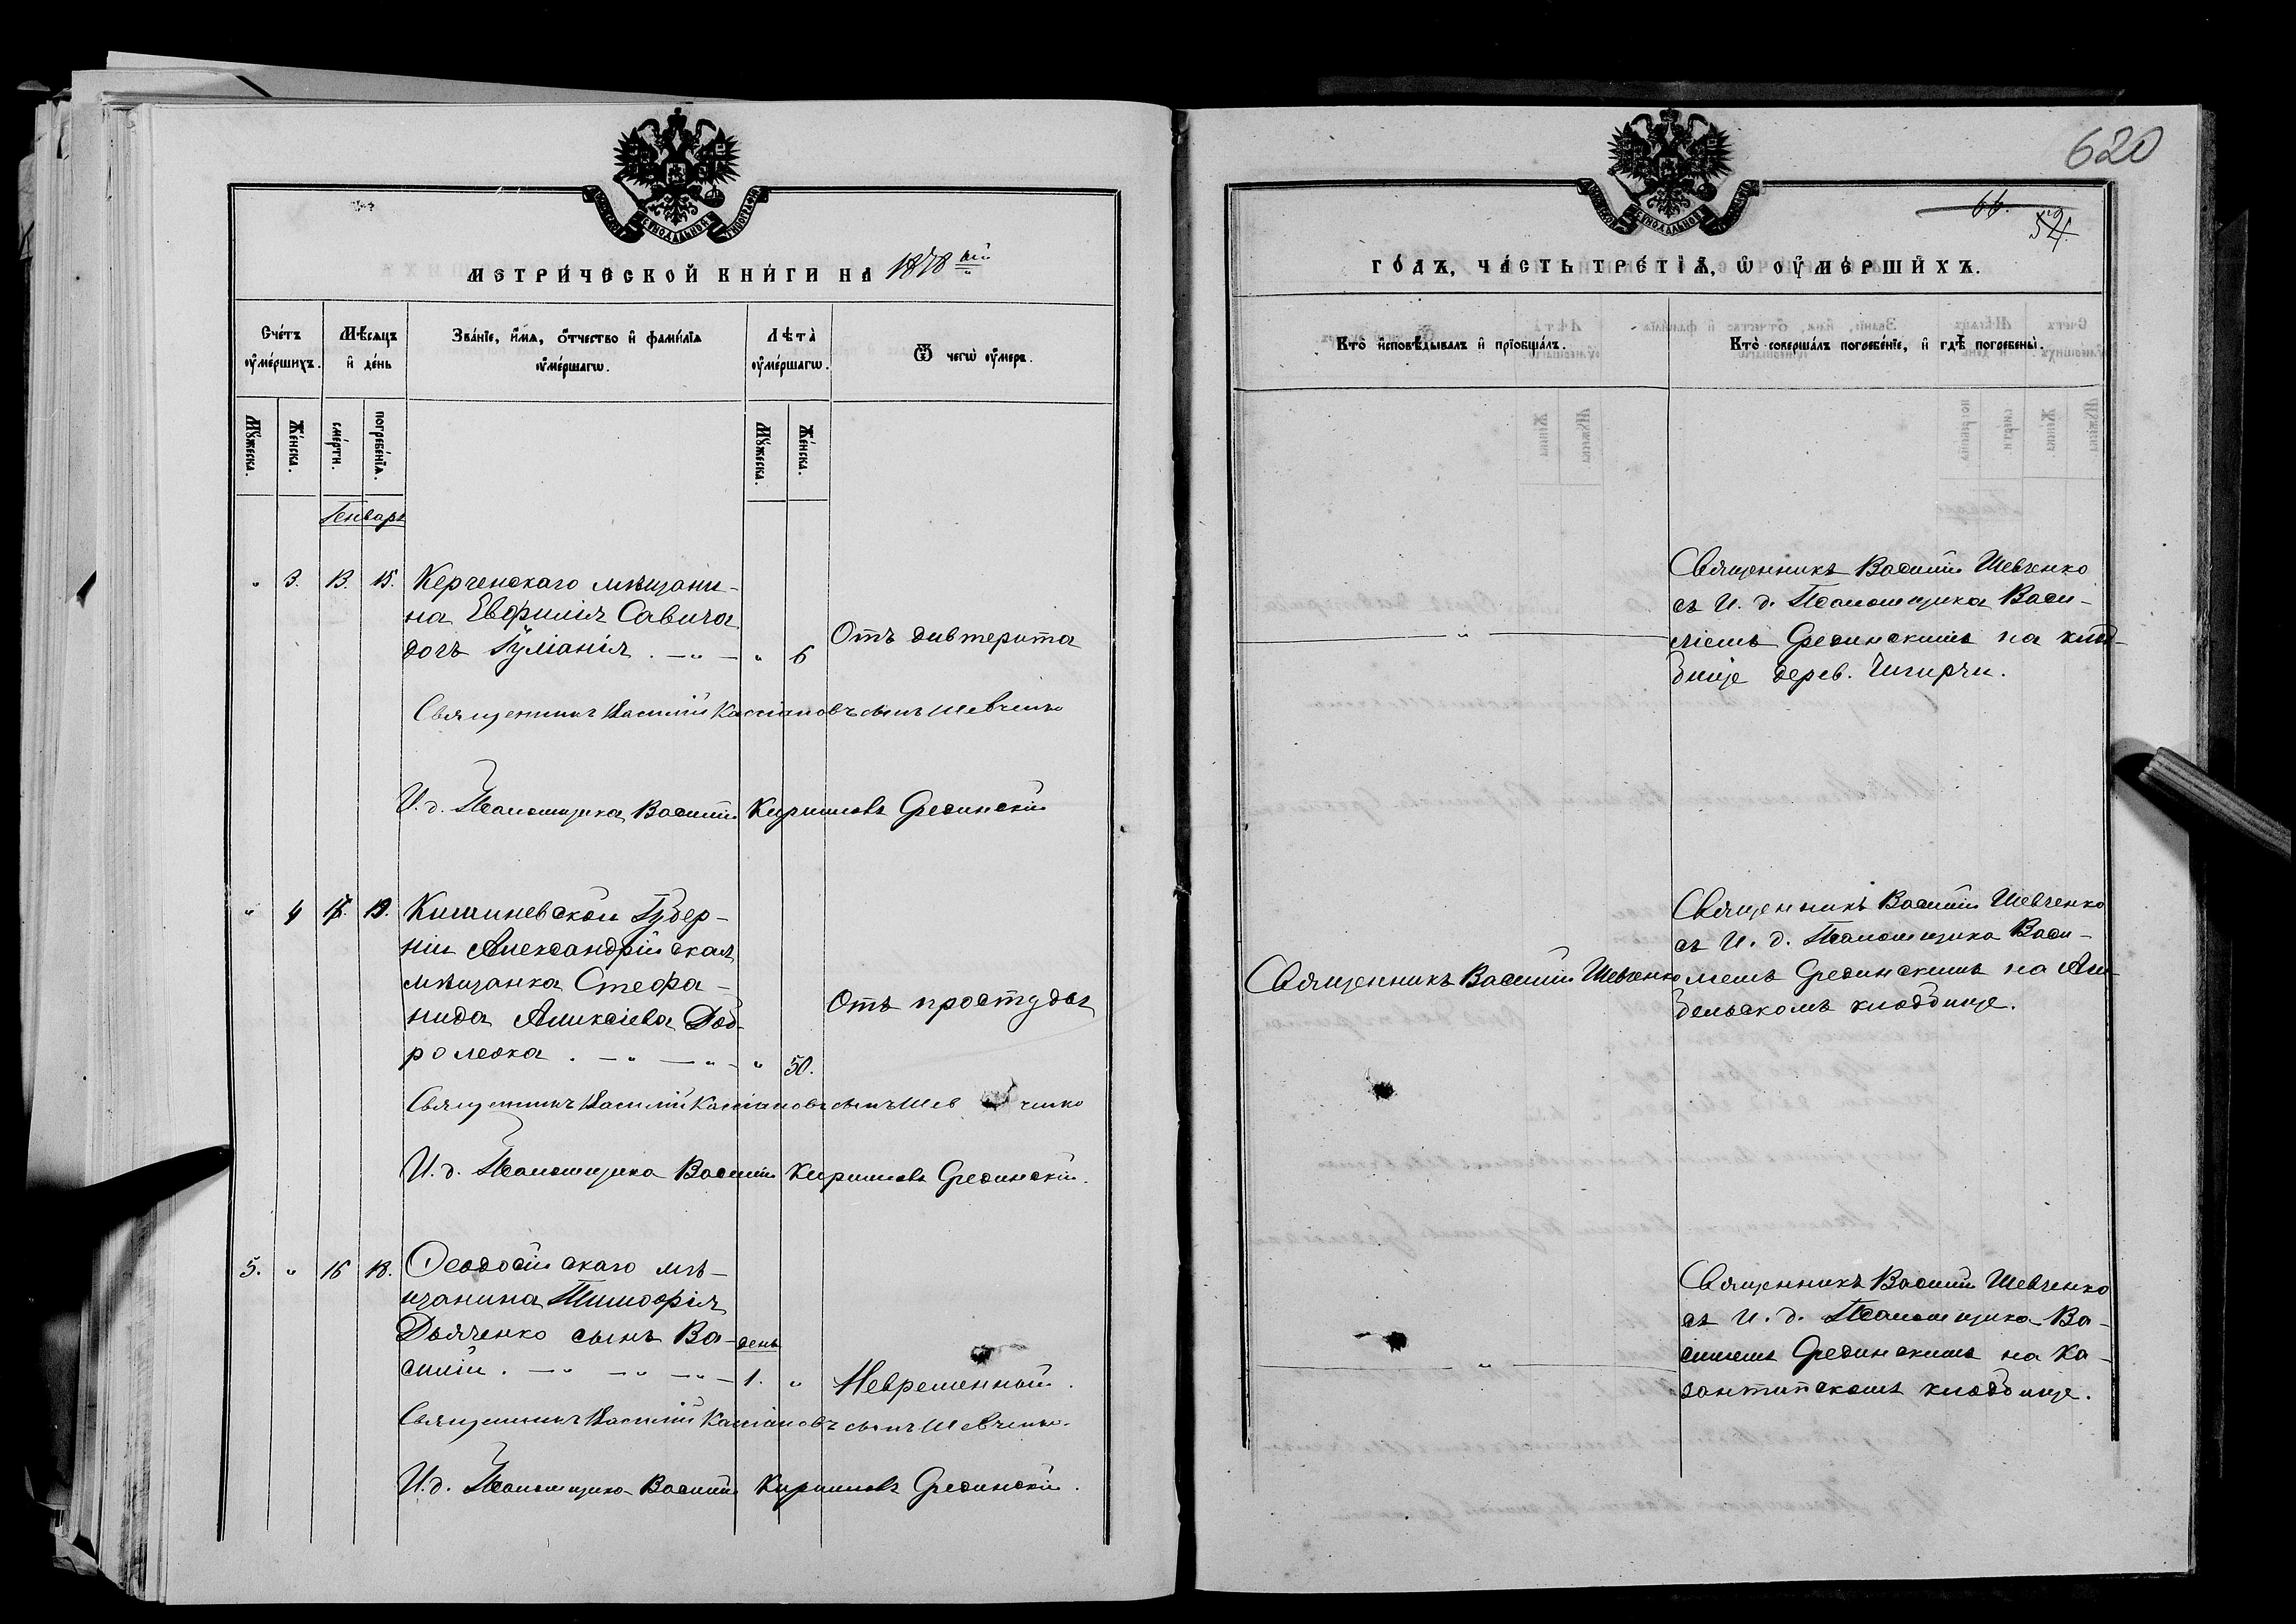 620
66.
54.
МЕТРИ́ЧЕСКОЙ КНИ́ГИ НА 1878ый
Сче́тъ оу҆ме́ршихъ.
Мѣ́сяцъ и҆ де́нь
Зва́нїе, и҆́мѧ, ѻ҆́тчество и҆ фами́лїѧ оу҆ме́ршагѡ.
Лѣта̀ оу҆ме́ршагѡ.
Ѿ чегѡ̀ оу҆́меръ.
Мꙋ́жеска.
Же́нска.
сме́рти.
погребе́нїѧ.
Мꙋ́жеска.
Же́нска.
Генварь
" 3. 13. 15. Керченскаго мѣщани-
на Евфимія Савича
дочь Іуліанія . — " — " 6 Отъ дивтерита
Священникъ Василій Кассіановъ сынъ Шевченко
И. д. Псаломщика Василій Кириловъ Срединскій
" 4 17. 19. Кишиневской Губер-
ніи Александрійская
мѣщанка Стефа-
нида Алексіева Доб-
ролеска . — " — " — " 50. Отъ простуды
Священникъ Василій Кассіановъ сынъ Шевченко
И. д. Псаломщика Василій Кириловъ Срединскій.
5. " 16 18. Ѳеодосійскаго мѣ-
щанина Тимоѳея
Дьяченко сынъ Ва-
силій . — " — " — " — день 1. " Невременный.
Священникъ Василій Кассіановъ сынъ Шевченко.
И. д. Псаломщика Василій Кириловъ Срединскій.
ГО́ДЪ, ЧА́СТЬ ТРЕ́ТЇѦ, Ѡ҆ ОУ҆МЕ́РШИХЪ.
Кто̀ и҆сповѣ́дывалъ и҆ прїобща́лъ.
Кто̀ соверша́лъ погребе́нїе, и҆ гдѣ̀ погребены̀.
Священникъ Василій Шевченко
съ И. д. Псаломщика Васи-
ліемъ Срединскимъ на клад-
бище дерев. Чигирчи.
"
Священникъ Василій Шевченко
съ И. д. Псаломщика Васи-
Священникъ Василій Шевченко
лемъ Срединскимъ на
дельскомъ кладбище.
Священникъ Василій Шевченко
съ И. д. Псаломщика Ва-
силіемъ Срединскимъ на Ка-
зантипскомъ кладбище.
"